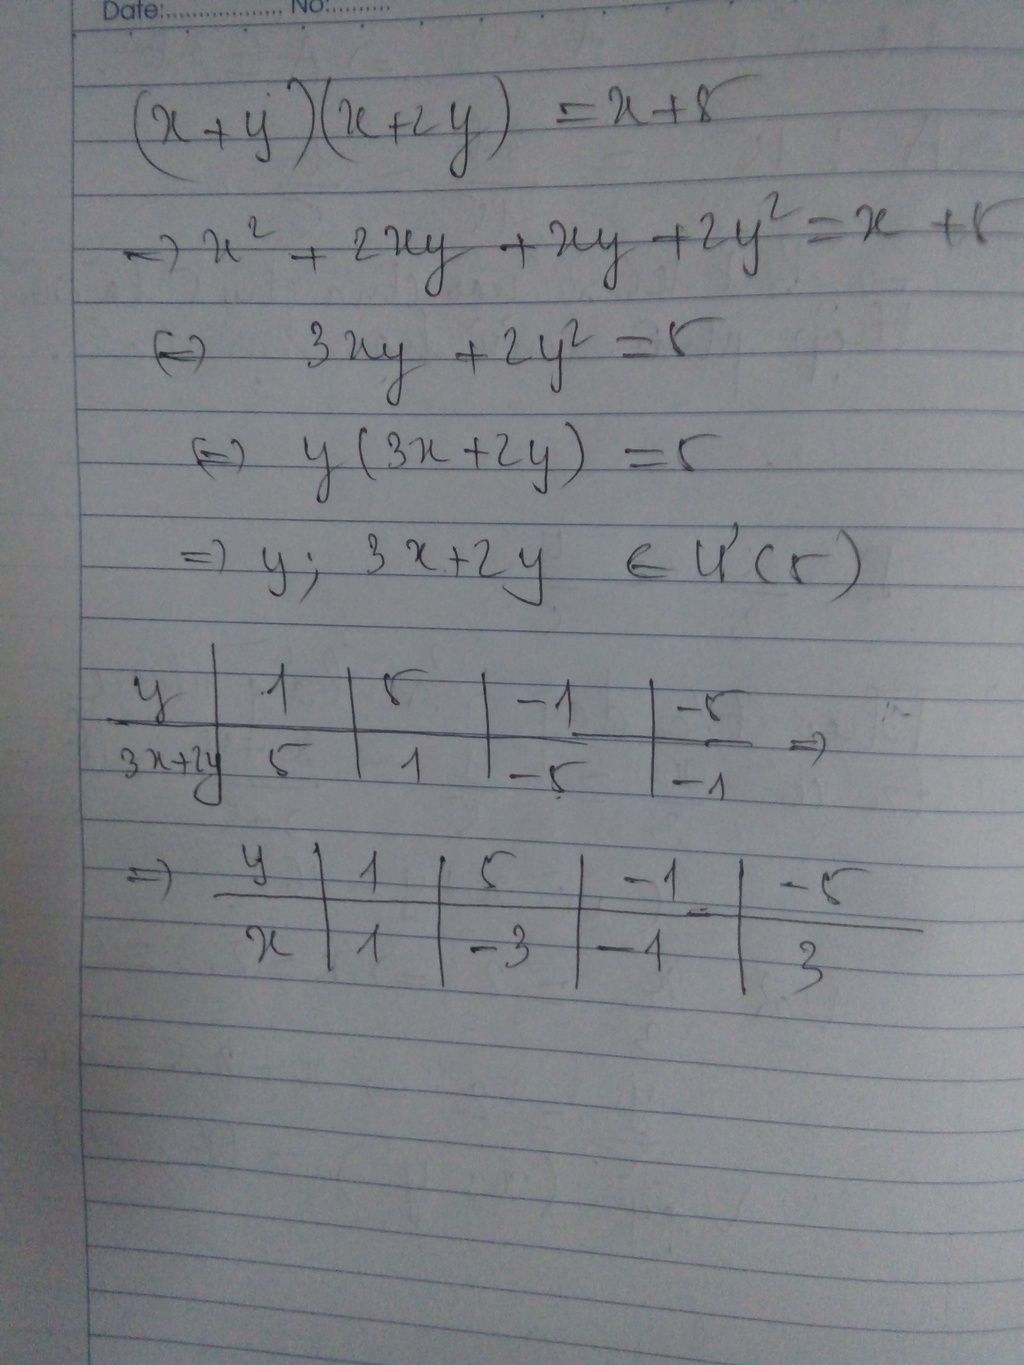 Date:.................. No:..........
(x+y)(x+2y) = x+5
=> x² + 2xy + xy + 2y² = x + 5
<=> 3xy + 2y² = 5
<=> y(3x+2y) = 5
=> y; 3x+2y ∈ Ư(5)
y | 1 | 5 | -1 | -5
3x+2y | 5 | 1 | -5 | -1 =>
=> y | 1 | 5 | -1 | -5
x | 1 | -3 | -1 | 3